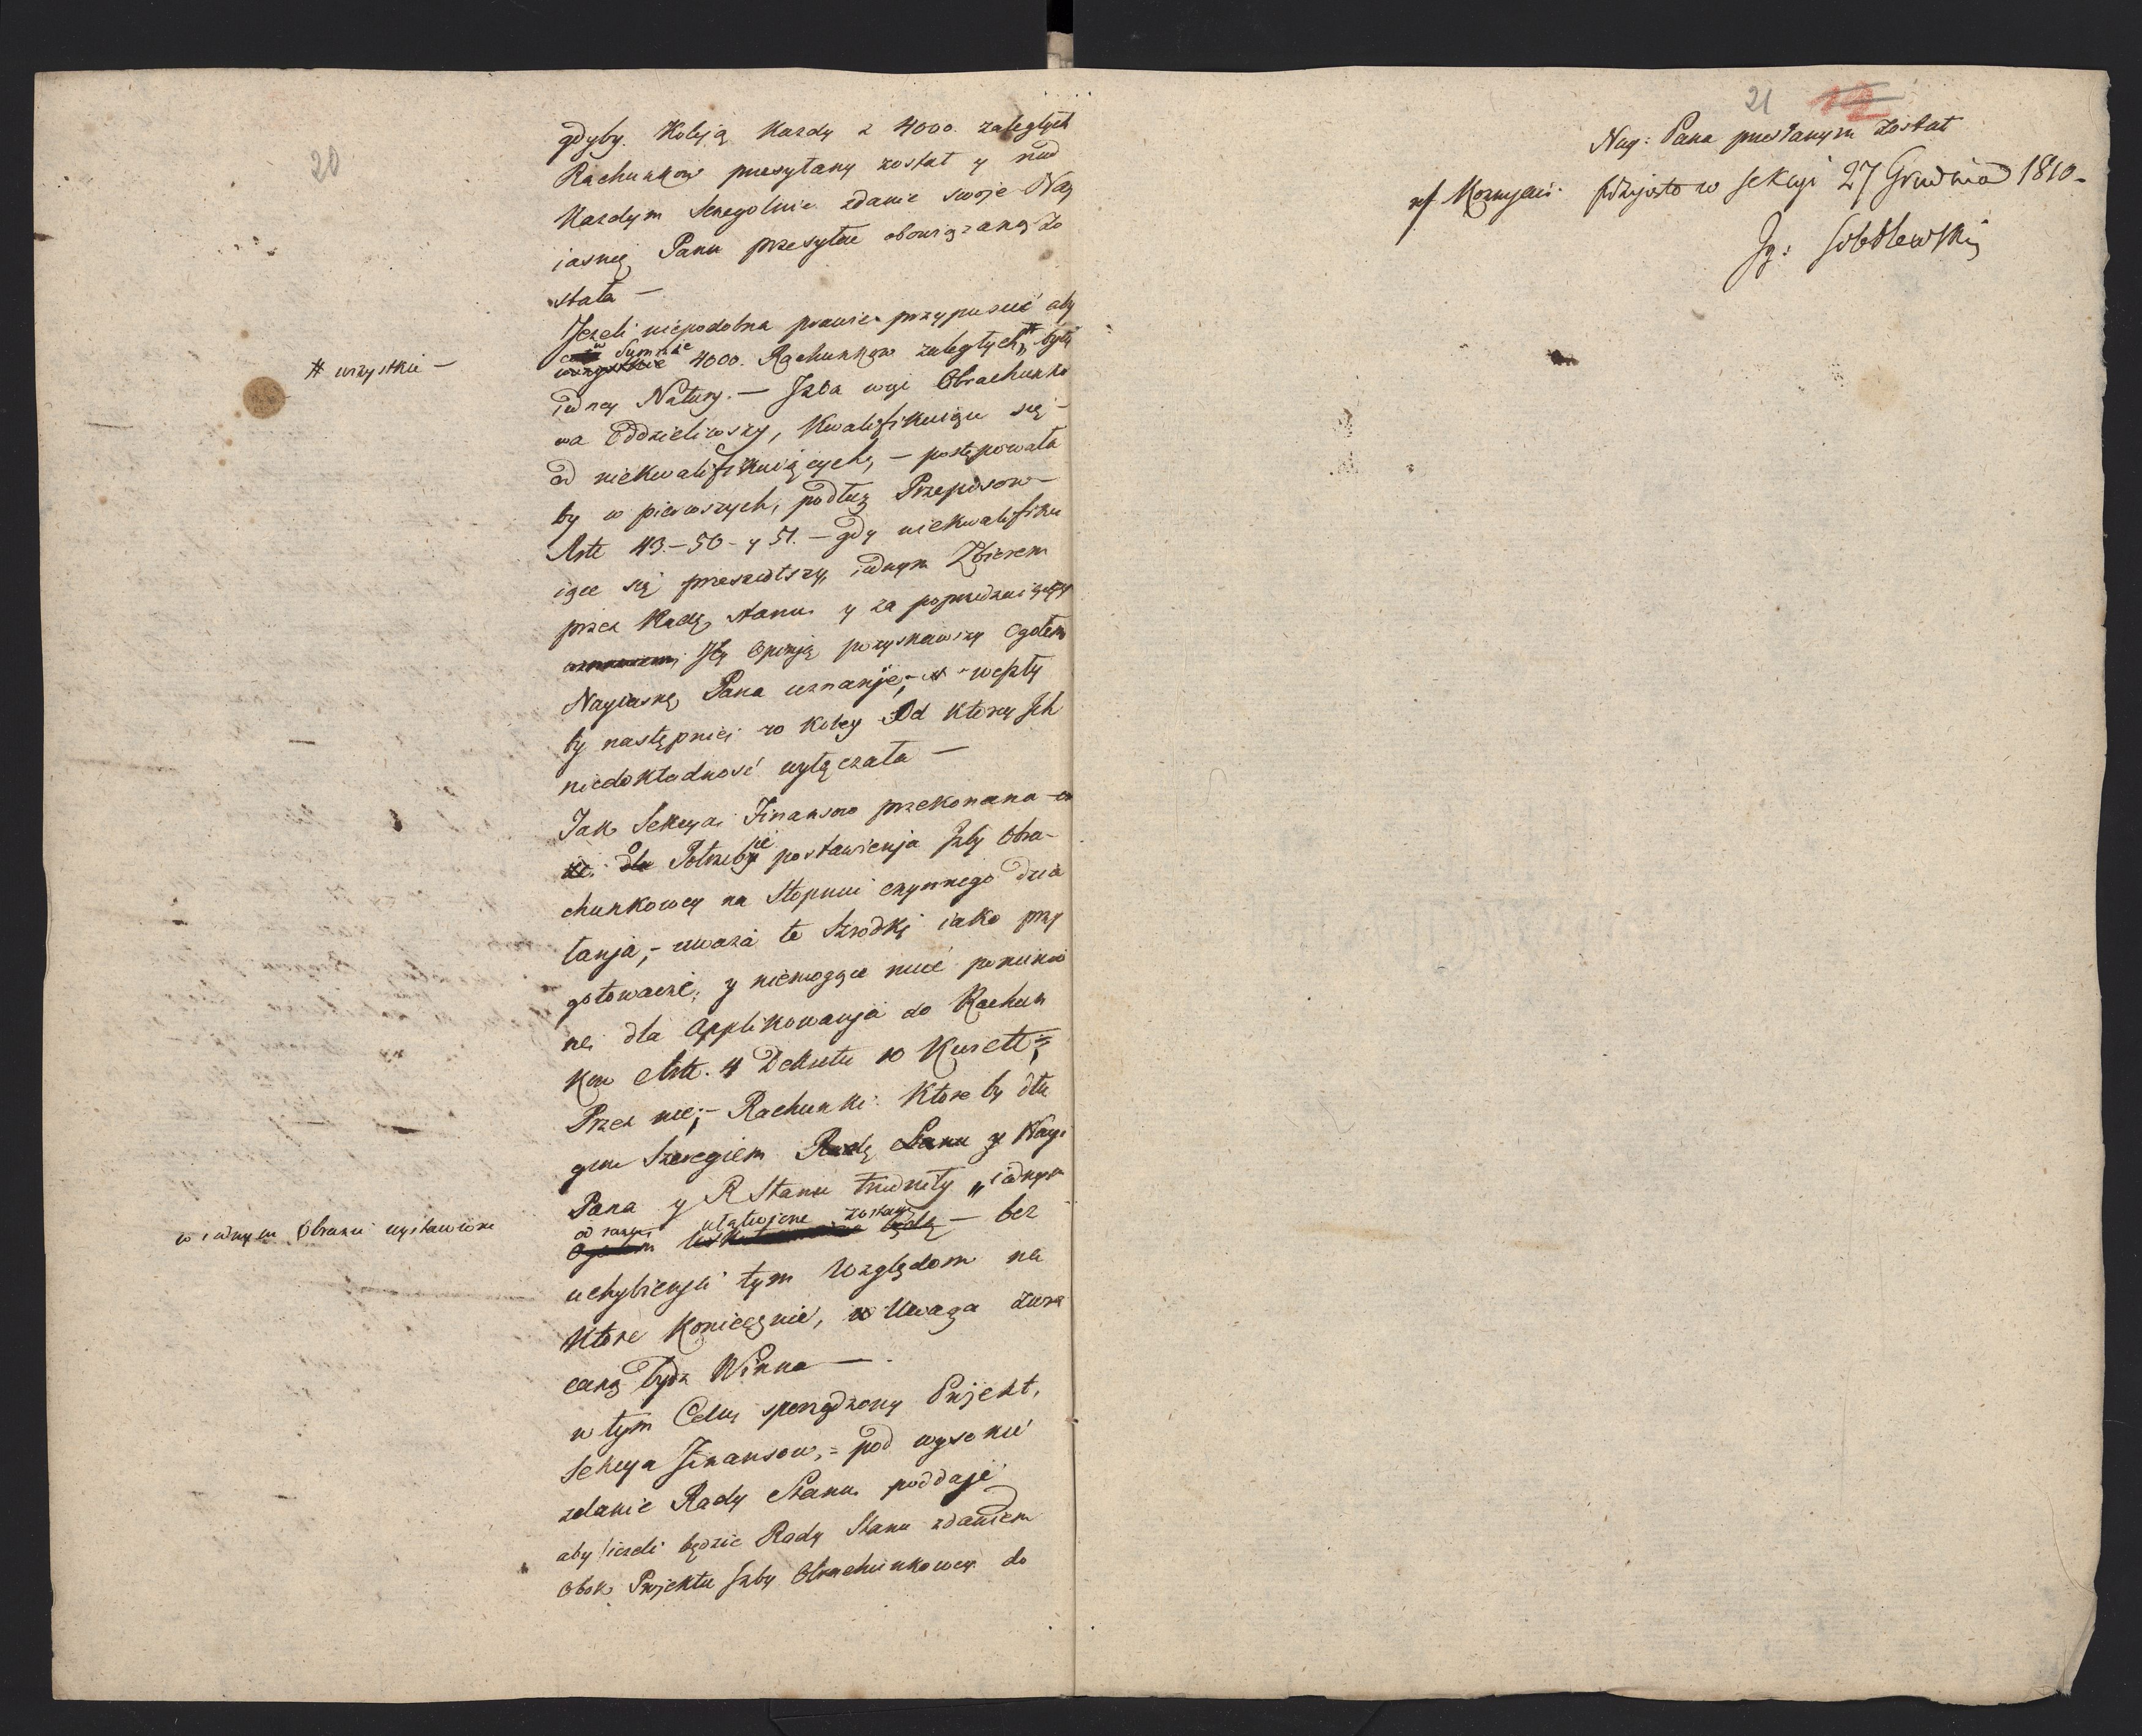 20
gdyby Koleją Kazdy z 4000. zaległych
Rachunkow przesyłany został y nad
Kazdym szczegolnie zdanie swoje Nay
iasnię Panu przesyłać obowiązaną zo
stała —
Jezeli niepodobna prawie przypuscić aby
w Summie
wszystkie 4000. Rachunkow zaległych # były
# wszystkie —
iedney Natury. — Izba więc Obrachunko
wa Oddzieliwszy, Kwalifikuiące się
od niekwalifikuiących, — postępowała
by w pierwszych, podług Przepisow
Art: 43. — 50 - y 51. — gdy niekwalifiku
iące się przeszedłszy, iednym Zbiorem
przez Radę Stanu y za poprzedniczym
Jey Opinją pozyskawszy Ogołem
Nayiasnię Pana uznanje, — weszły
by następnie w koley Od ktorey Ich
niedokładność wyłączała —
Jak Sekcya Finansow przekonana
o Potrzebie postawienja Izby Obra-
chunkowey na Stopniu czynnego dzia
łanja, — uważa te Szrodki iako przy
gotowawcze, y niemogące mieć
ne dla Applikowanja do Rachun
kow Art. 4 Dekretu
Przez nie; — Rachunki ktore by dłu
giem Szeregiem Radę Stanu y Nayi
Pana y R Stanu trudniły „ iednym
w iednym Obrazie wystawione
od razu ułatwione zostaną
Ogołem będą — bez
uchybienja tym Względom na
Ktore koniecznie, Uwaga zwra
caną bydź Winna —
w tym Celu sporządzony Projekt,
Sekcya Finansow, = pod wysokie
zdanie Rady Stanu poddaje
aby jezeli będzie Rady Stanu zdaniem
Obok Projektu Izby Obrachunkowey do
21
Nay: Pana przesłanym został
Przyjęto w Sekcyi 27 Grudnia 1810 -
Ig: Sobolewski